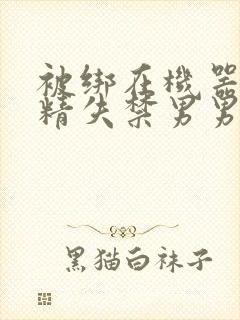 被绑在機器
精失禁男男
黑猫白袜子